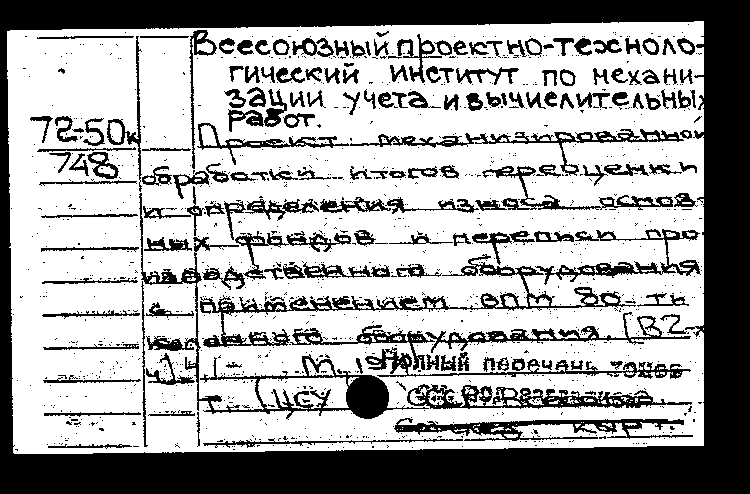 Всесоюзный проектно-техноло-
гический институт по механи-
зации учета и вычислительных
работ.
72-50к
748
Проект механизированной
обработки итогов переоценки
и определения износа основ-
ных фондов и переписи про-
изводственного оборудования
с применением ВПМ 80-ти
колонного оборудования. [В 2-х
ч.] Ч. 1- М., 197
Полный перечень томов
т. (ЦСУ СССР
см. след. карт.